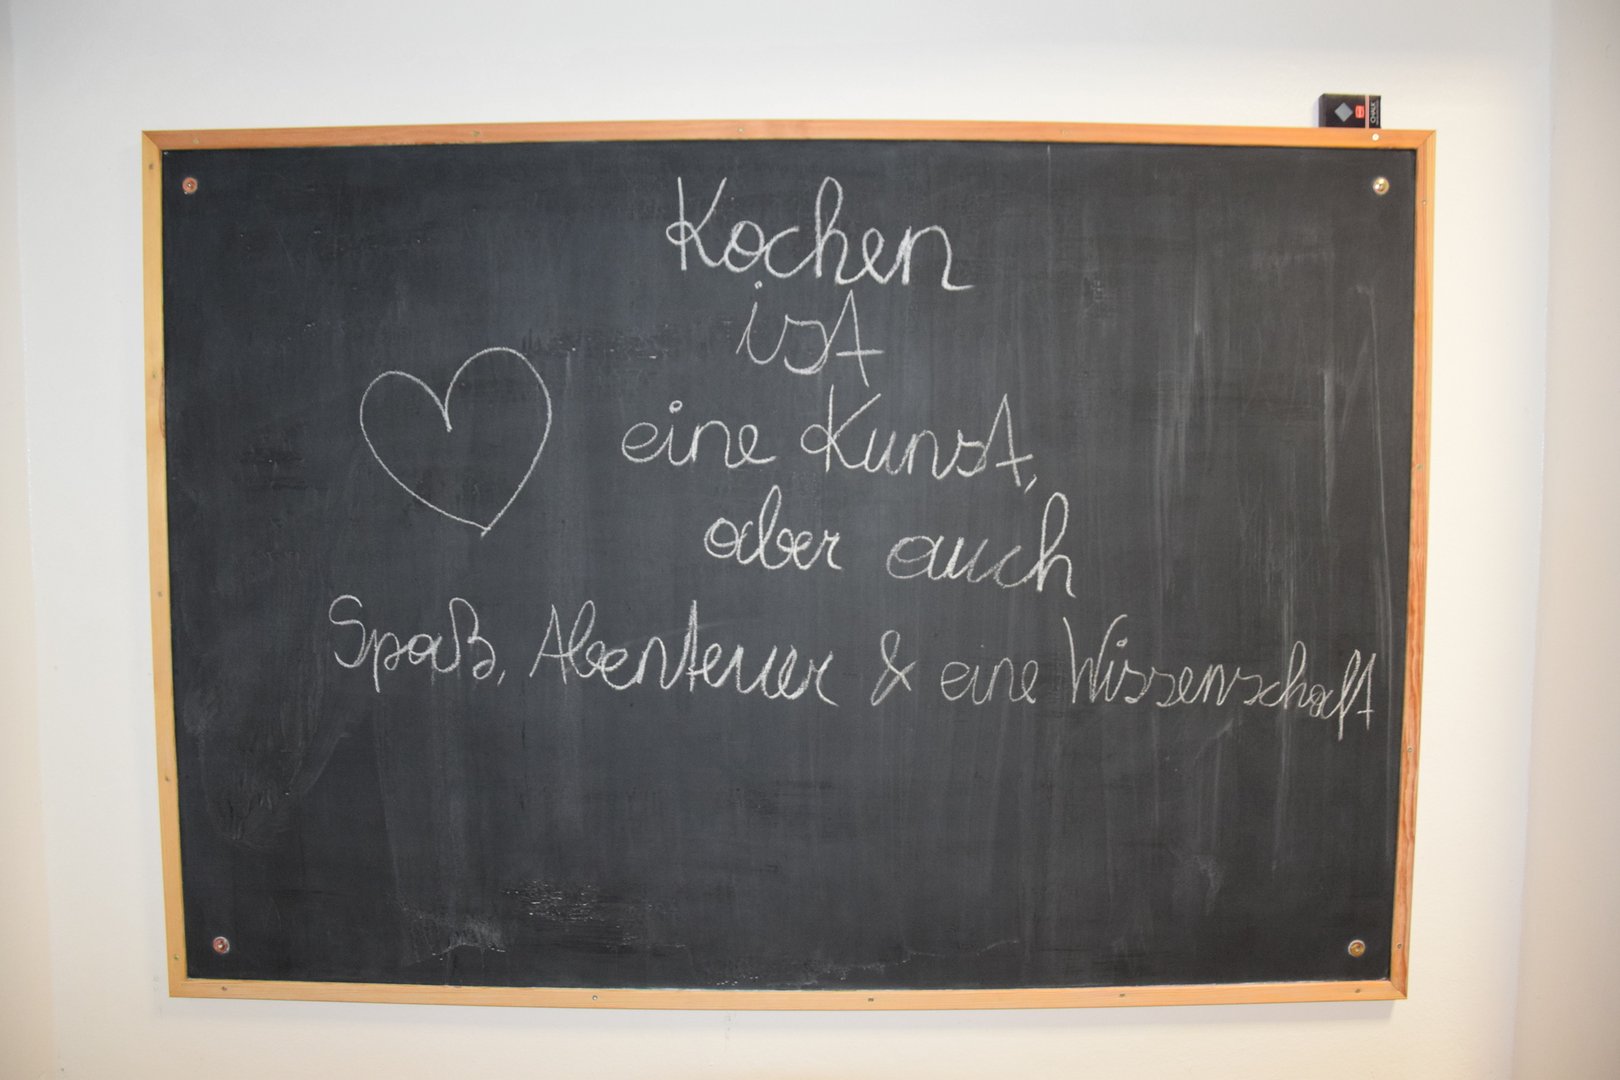 Kochen
ist
eine Kunst,
aber auch
Spaß, Abenteuer & eine Wissenschaft
CHALK